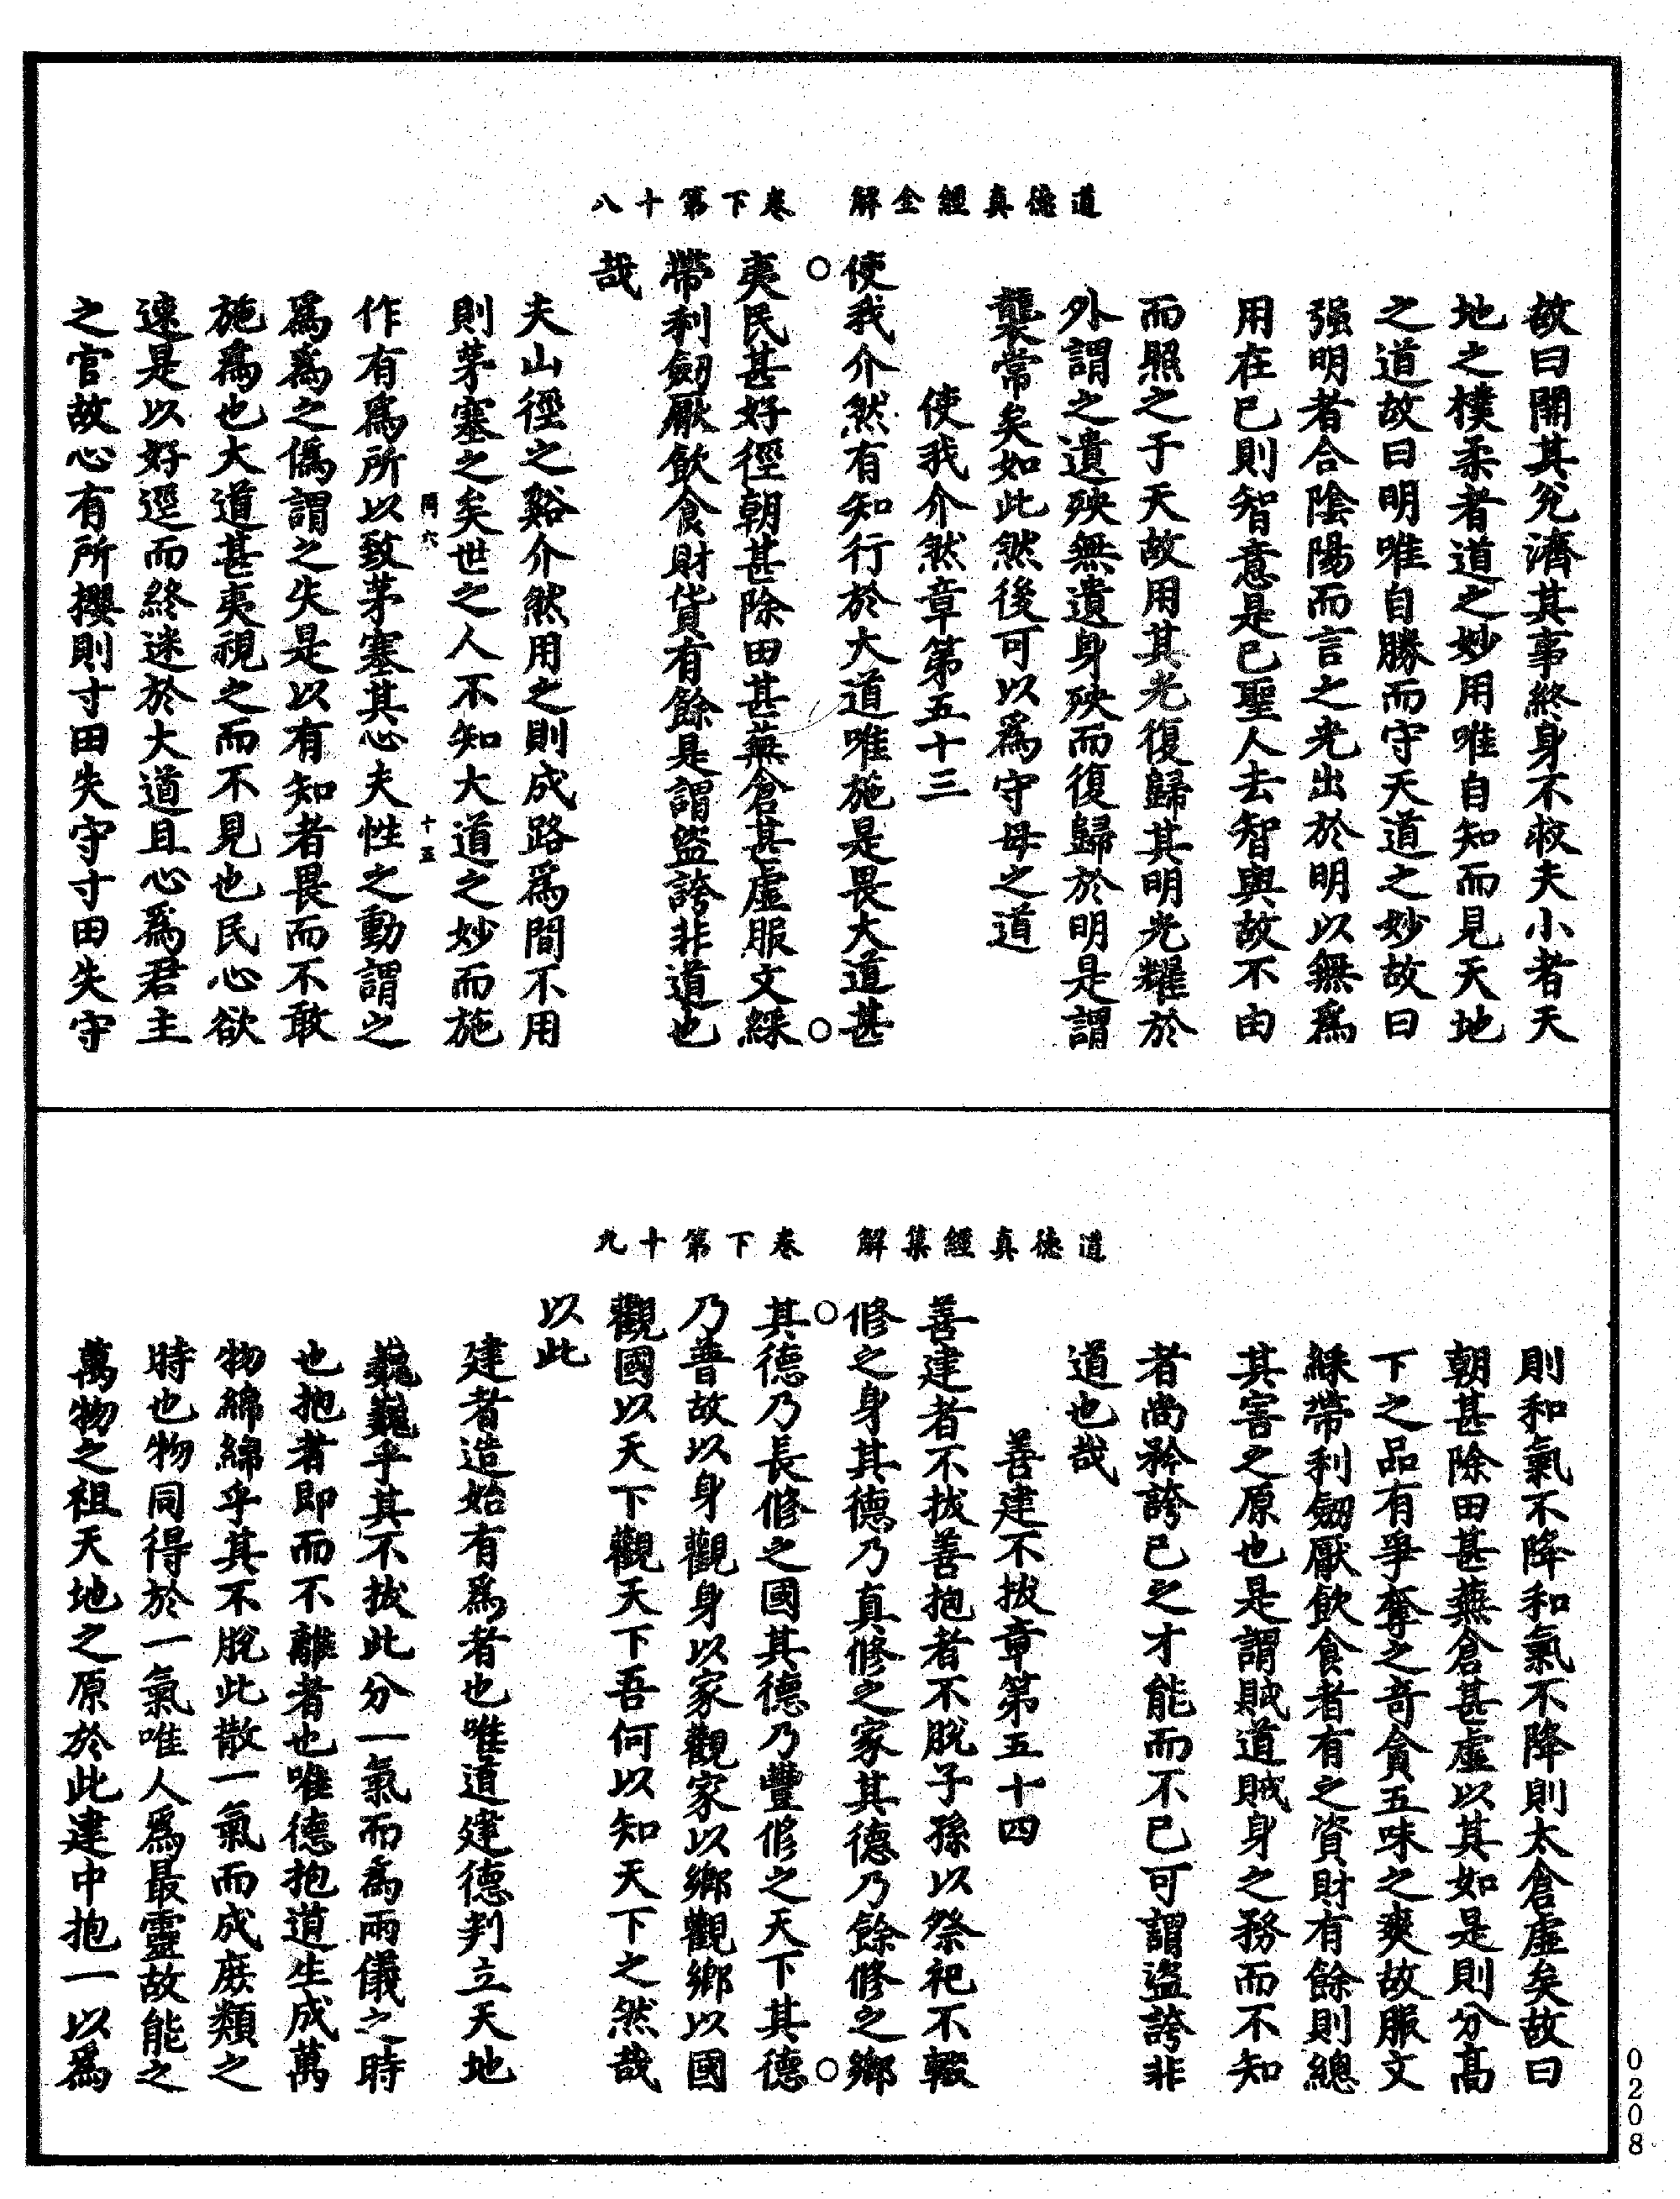 道德真經全解　卷下第十八
故曰開其兌濟其事終身不救夫小者天
地之樸柔者道之妙用唯自知而見天地
之道故曰明唯自勝而守天道之妙故曰
强明者合陰陽而言之光出於明以無爲
用在已則智意是已聖人去智與故不由
而照之于天故用其光復歸其明光耀於
外謂之遺殃無遺身殃而復歸於明是謂
襲常矣如此然後可以爲守母之道
使我介然章第五十三
使我介然有知行於大道唯施是畏大道甚
○　○
夷民甚好徑朝甚除田甚蕪倉甚虛服文綵
帶利劒厭飲食財貨有餘是謂盜誇非道也
哉
夫山徑之谿介然用之則成路爲間不用
則茅塞之矣世之人不知大道之妙而施
問六　十五
作有爲所以致茅塞其心夫性之動謂之
爲爲之僞謂之失是以有知者畏而不敢
施爲也大道甚夷視之而不見也民心欲
速是以好逕而終迷於大道且心爲君主
之官故心有所攖則寸田失守寸田失守
道德真經集解　卷下第十九
則和氣不降和氣不降則太倉虛矣故曰
朝甚除田甚蕪倉甚虛以其如是則分高
下之品有爭奪之奇貪五味之爽故服文
綵帶利劒厭飲食者有之資財有餘則總
其害之原也是謂賊道賊身之務而不知
者尚矜誇已之才能而不已可謂盜誇非
道也哉
善建不拔章第五十四
善建者不拔善抱者不脫子孫以祭祀不輟
修之身其德乃真修之家其德乃餘修之鄉
○　○
其德乃長修之國其德乃豐修之天下其德
乃普故以身觀身以家觀家以鄉觀鄉以國
觀國以天下觀天下吾何以知天下之然哉
以此
建者造始有爲者也唯道建德判立天地
巍巍乎其不拔此分一氣而爲兩儀之時
也抱者即而不離者也唯德抱道生成萬
物綿綿乎其不脫此散一氣而成庶類之
時也物同得於一氣唯人爲最靈故能之
萬物之祖天地之原於此建中抱一以爲
0208